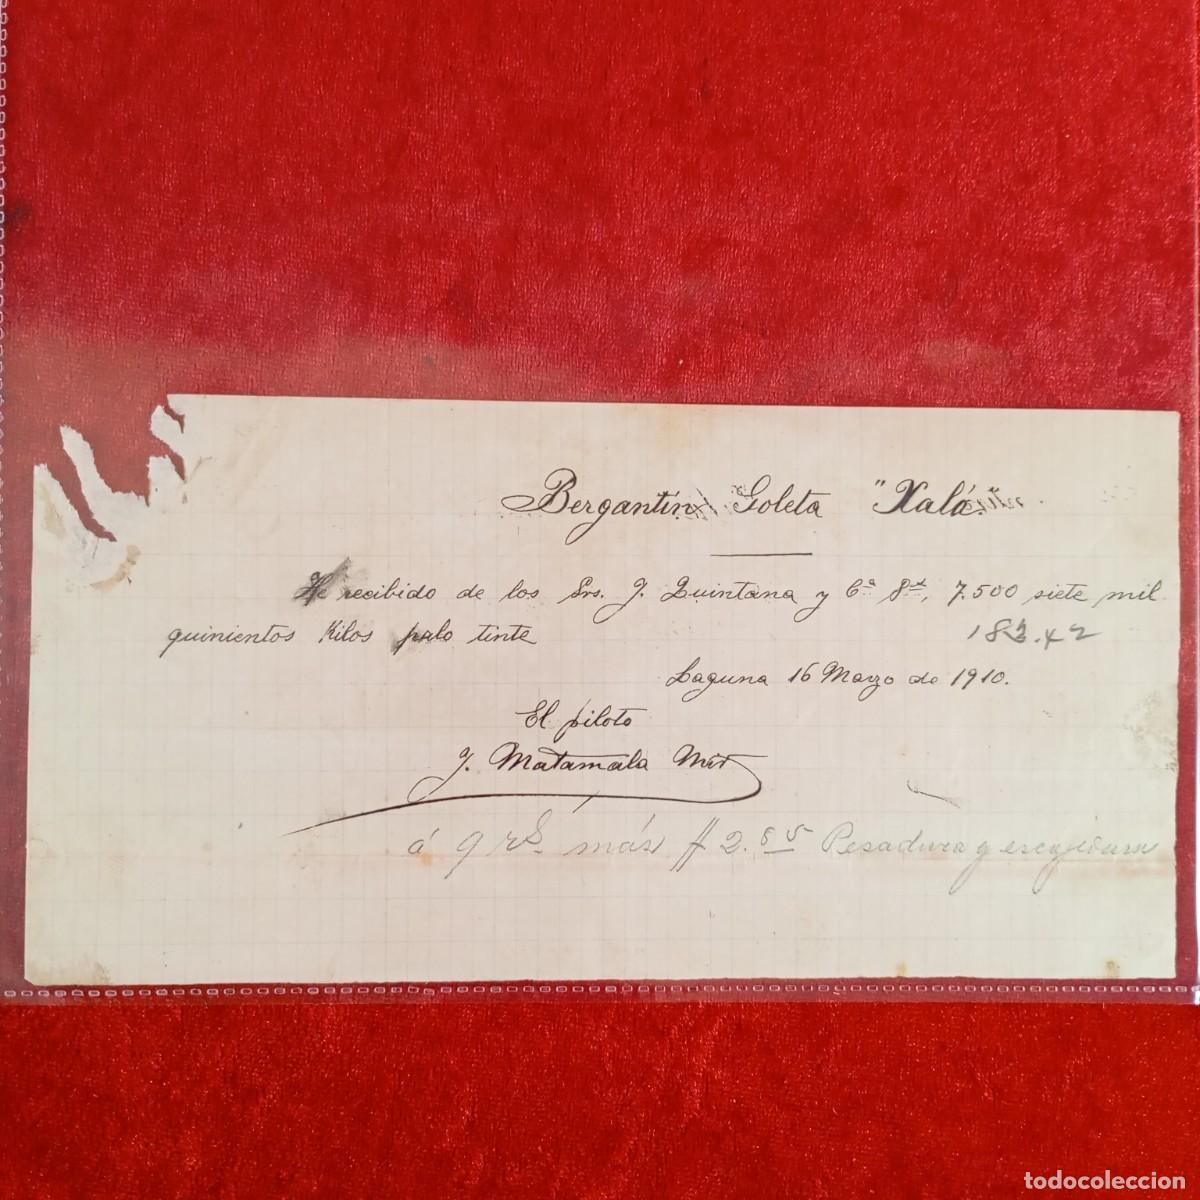 Bergantín Goleta "Xaló"
He recibido de los Srs. J. Quintana y Cª Sª, 7.500 siete mil
quinientos Kilos palo tinte
182.42
Laguna 16 Marzo de 1910.
El piloto
J. Matamala Mir
á 9 rs. más # 2. Pesadura y escogedura
todocoleccion